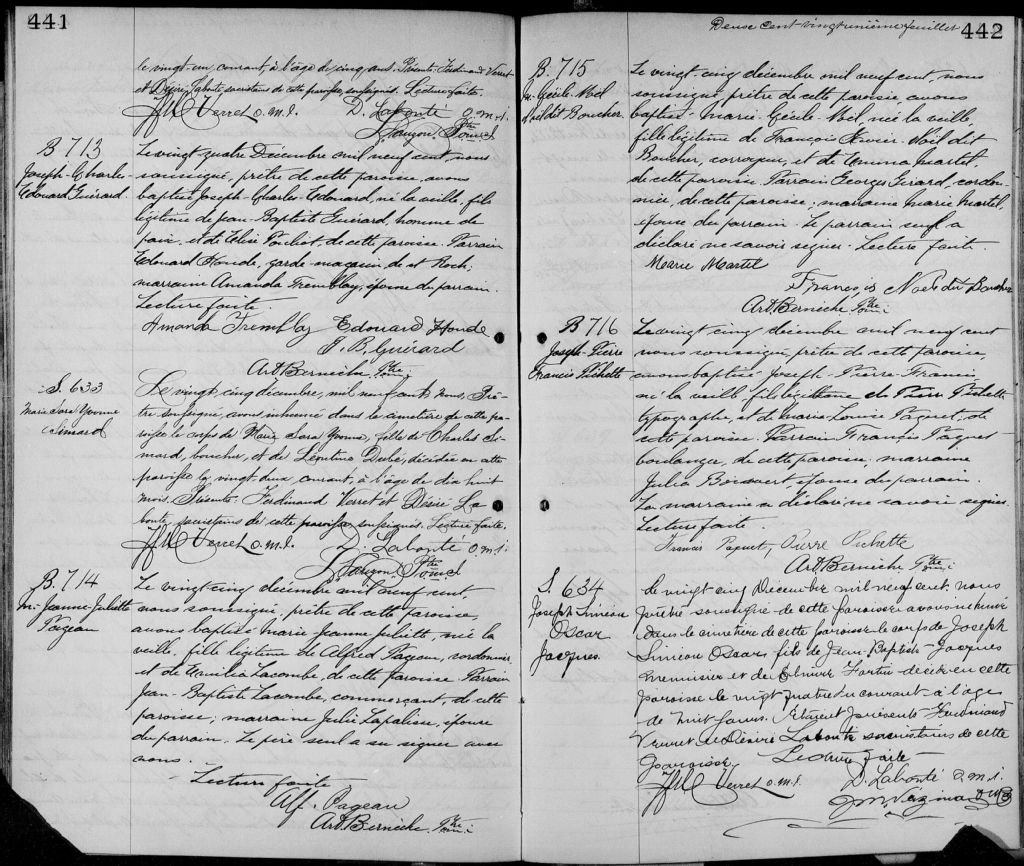 441
le vingt-un courant, à l'âge de cinq ans. Présents Ferdinand Verret
et Désiré Labonté sacristains de cette paroisse, soussignés. Lecture faite.
Verret o.m.i. D. Labonté o.m.i.
Ptre
B 713
Joseph-Charles-
Edouard Guérard.
Le vingt-quatre Décembre mil neuf cent, nous
soussigné, prêtre de cette paroisse, avons
baptisé Joseph-Charles-Edouard, né la veille, fils
légitime de Jean-Baptiste Guérard, homme de
paie, et de Zélise Pouliot, de cette paroisse. Parrain
Edouard Houde, garde-magasin, de st Roch;
marraine Amanda Tremblay, épouse du parrain.
Lecture faite.
Amanda Tremblay Edouard Houde
J. B. Guérard
Art. Bernèche Ptre o.m.i
S. 633
Marie Sara Yvonne
Simard
Le vingt-cinq décembre, mil neuf cent, Nous, Prê-
tre soussigné, avons inhumé dans le cimetière de cette pa-
roisse le corps de Marie Sara Yvonne, fille de Charles Si-
mard, boucher, et de Léontine Dubé, décédée en cette
paroisse le vingt-deux courant, à l'âge de dix huit
mois. Présents: Ferdinand Verret et Désiré La-
bonté, sacristains de cette paroisse soussignés. Lecture faite.
Verret o.m.i. D. Labonté o.m.i.
Ptre
B. 714
M- Jeanne-Juliette
Pageau
Le vingt-cinq décembre mil neuf cent,
nous soussigné, prêtre de cette paroisse,
avons baptisé Marie Jeanne Juliette, née la
veille, fille légitime de Alfred Pageau, cordonnier,
et de Emilia Lacombe, de cette paroisse. Parrain
Jean-Baptiste Lacombe, commerçant, de cette
paroisse; marraine Julie Lapalisse, épouse
du parrain. Le père seul a su signer avec
nous.
- Lecture faite
Alf. Pageau
Art. Bernèche Ptre o.m.i
Deux cent-vingtunième feuillet 442
B. 715
M. Cécile Noël
Noël dit Boucher.
Le vingt-cinq décembre mil neuf cent, nous
soussigné, prêtre de cette paroisse, avons
baptisé Marie-Cécile-Noël, née la veille,
fille légitime de François Xavier Noël dit
Boucher, corroyeur, et de Emma Martel,
de cette paroisse. Parrain Georges Girard, cordon-
nier, de cette paroisse; marraine Marie Martel,
épouse du parrain. Le parrain seul a
déclaré ne savoir signer. Lecture faite.
Marie Martel
Francois Noel dit Boucher
Art. Bernèche Ptre o.m.i
B 716
Joseph-Pierre
Francis Pichette
Le vingt-cinq décembre mil neuf cent
nous soussigné, prêtre de cette paroisse,
avons baptisé Joseph-Pierre Francis,
né la veille fils légitime de Pierre Pichette
typographe, et de Marie-Louise Paquet, de
cette paroisse. Parrain Francis Paquet
boulanger, de cette paroisse, marraine
Julia Boisvert épouse du parrain.
La marraine a déclaré ne savoir signer.
Lecture faite.
Francis Paquet, Pierre Pichette
Art. Bernèche Ptre o.m.i
S. 634
Joseph Siméon
Oscar
Jacques.
Le vingt cinq Décembre mil neuf cent nous
prêtre soussigné de cette paroisse avons inhumé
dans le cimetière de cette paroisse le corps de Joseph
Siméon Oscar, fils de Jean-Baptiste Jacques
menuisier et de Elmire Fortin décédé en cette
paroisse le vingt quatre du courant à l'âge
de huit jours. Etaient présents Ferdinand
Verret et Désiré Labonté sacristains de cette
paroisse. Lecture faite
Verret o.m.i. D. Labonté o.m.i.